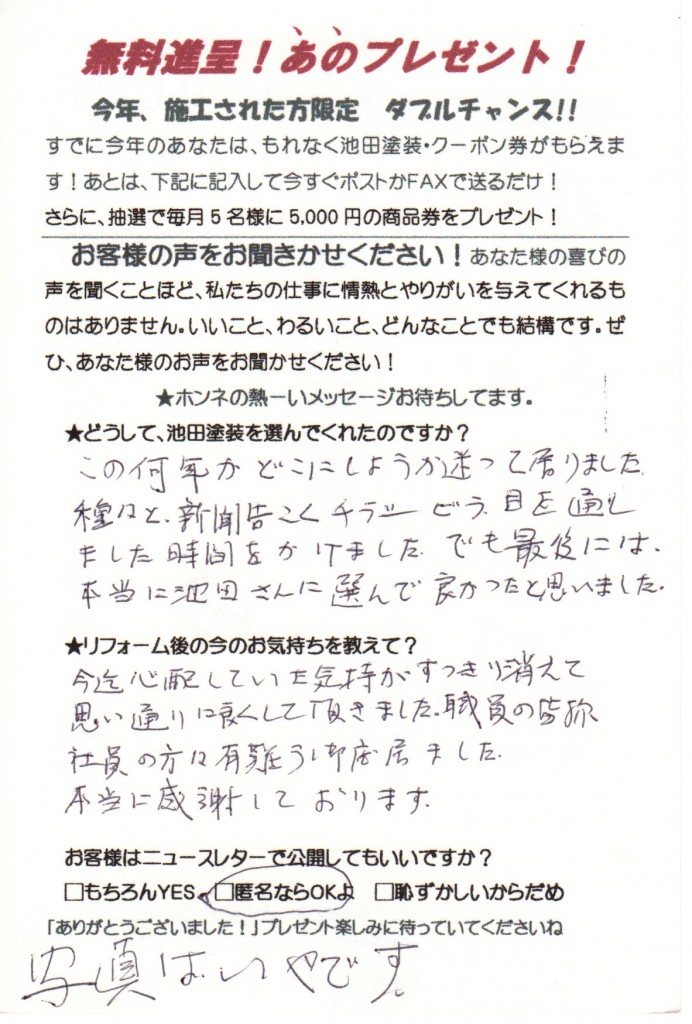 無料進呈！あのプレゼント！
今年、施工された方限定　ダブルチャンス!!
すでに今年のあなたは、もれなく池田塗装・クーポン券がもらえま
す！あとは、下記に記入して今すぐポストかFAXで送るだけ！
さらに、抽選で毎月5名様に5,000円の商品券をプレゼント！
お客様の声をお聞きかせください！あなた様の喜びの
声を聞くことほど、私たちの仕事に情熱とやりがいを与えてくれるも
のはありません。いいこと、わるいこと、どんなことでも結構です。ぜ
ひ、あなた様のお声をお聞かせください！
★ホンネの熱ーいメッセージお待ちしてます。
★どうして、池田塗装を選んでくれたのですか？
この何年かどこにしようか迷って居りました
種々と、新聞告こくチラシ 目を通し
ました時間をかけました。でも最後には、
本当に池田さんに選んで良かったと思いました。
★リフォーム後の今のお気持ちを教えて？
今迄心配していた気持がすっきり消えて
思い通りに良くして頂きました。職員の皆様
社員の方は有難う御座居ました。
本当に感謝しております。
お客様はニュースレターで公開してもいいですか？
□もちろんYES □匿名ならOKよ □恥ずかしいからだめ
「ありがとうございました！」プレゼント楽しみに待っていてくださいね
写真はいやです。